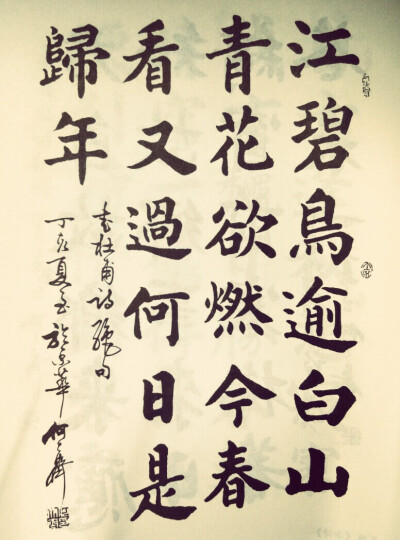 江碧鳥逾白山
青花欲燃今春
看又過何日是
歸年
書杜甫詩絕句
丁亥夏至於京華